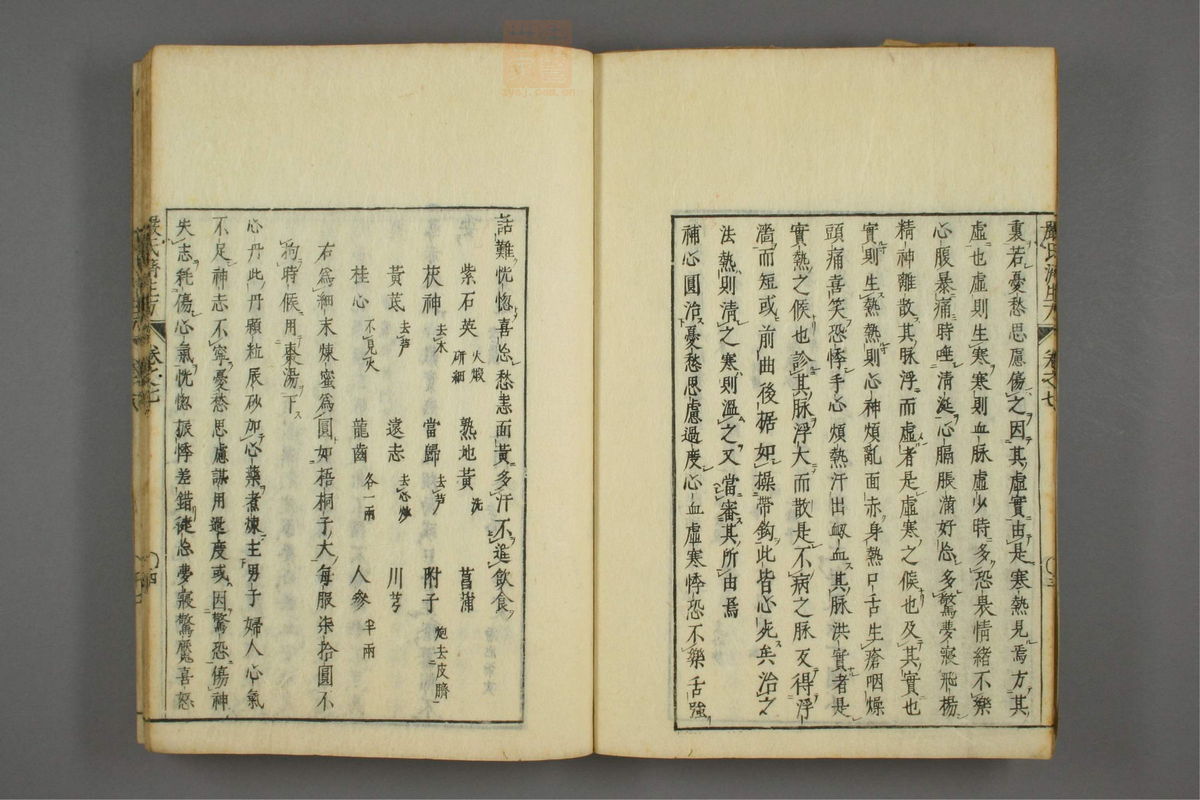 裏若憂愁思慮傷之因其虛實由是寒熱見焉方其
虛也虛則生寒寒則血脉虛少時多恐畏情緒不樂
心腹暴痛時唾清涎心膈脹滿好忘多驚夢寢飛楊
精神離散其脉浮而虛者是虛寒之候也及其實也
實則生熱熱則心神煩亂面赤身熱口舌生瘡咽燥
頭痛喜笑恐悸手心煩熱汗出衂血其脉洪實者是
實熱之候也診其脉浮大而散是不病之脉反得浮
濇而短或前曲後椐如操帶鈎此皆心死矣治之
法熱則清之寒則溫之又當審其所由焉
補心圓治憂愁思慮過度心血虛寒悸恐不樂舌強
嚴氏濟生方 卷之七
話難恍惚喜忘愁恚面黃多汗不進飲食
紫石英火煅研細 熟地黃洗 菖蒲
茯神去木 當歸去芦 附子炮去皮臍
黃茋去芦 遠志去心炒 川芎
桂心不見火 龍齒各一兩 人參半兩
右爲細末煉蜜爲圓如梧桐子大每服柒拾圓不
拘時候用棗湯下
心丹此丹顆粒辰砂加心藥煮煉主男子婦人心氣
不足神志不寧憂愁思慮謀用過度或因驚恐傷神
失志耗傷心氣恍惚振悸差錯健忘夢寢驚魘喜怒
嚴氏濟生方 卷之七